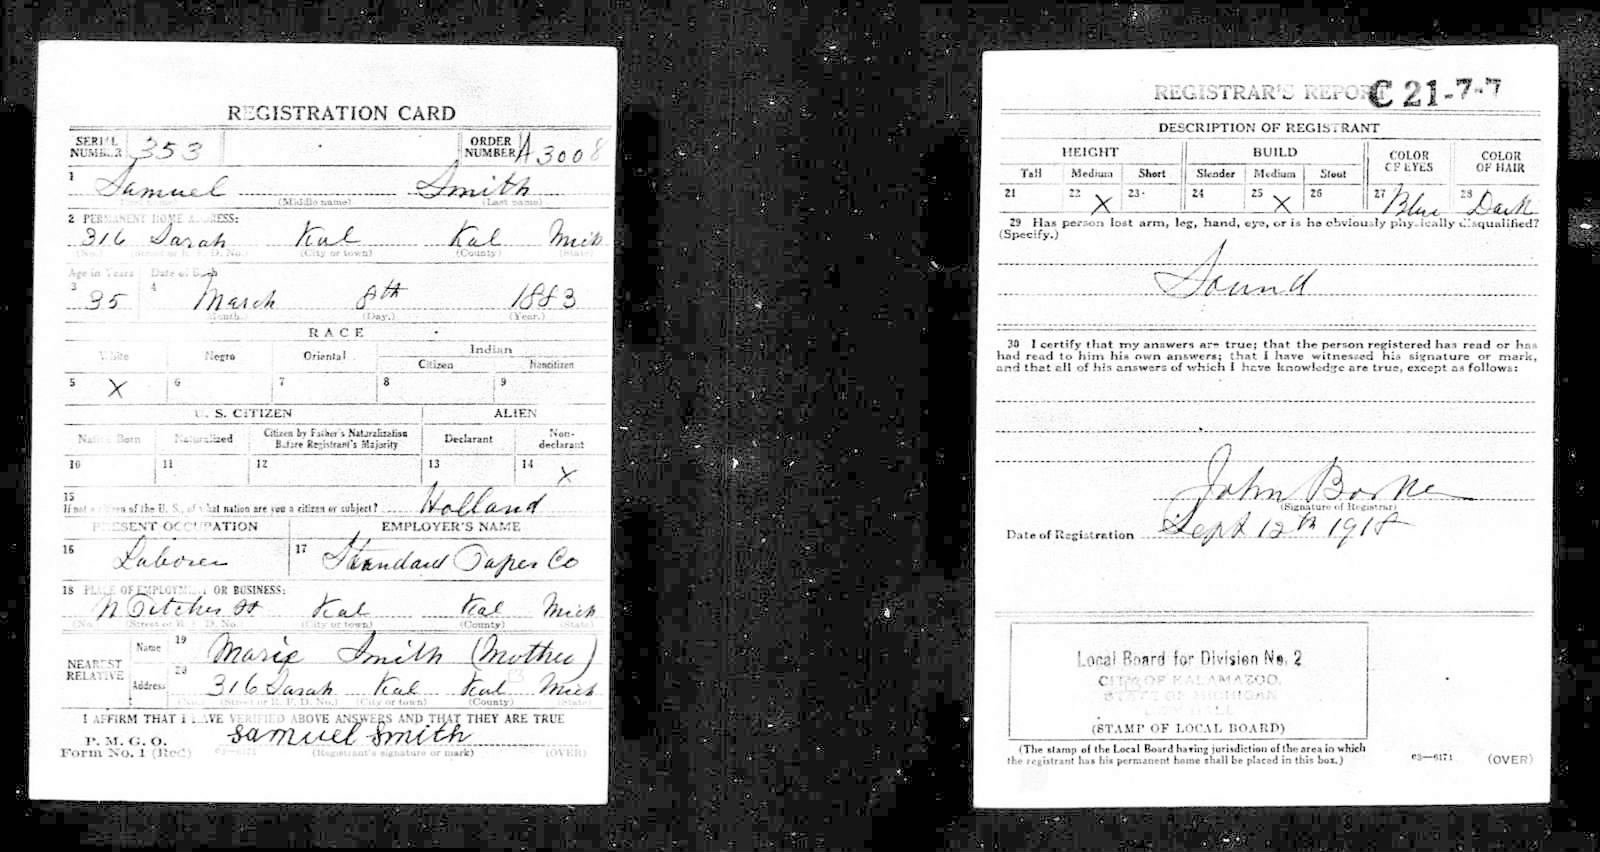 REGISTRATION CARD
SERIAL NUMBER 353 ORDER NUMBER A3008
1 Samuel Smith
(Middle name) (Last name)
2 PERMANENT HOME ADDRESS:
316 Sarah Kal Kal Mich
(No.) (Street or R. F. D. No.) (City or town) (County) (State)
Age in Years Date of Birth
3 35 4 March 8th 1883
(Month.) (Day.) (Year.)
RACE
White Negro Oriental Indian
Citizen Noncitizen
5 X 6 7 8 9
U. S. CITIZEN ALIEN
Native Born Naturalized Citizen by Father's Naturalization Before Registrant's Majority Declarant Non-declarant
10 11 12 13 14 X
15 If not a citizen of the U. S., of what nation are you a citizen or subject? Holland
PRESENT OCCUPATION EMPLOYER'S NAME
16 Laborer 17 Standard Paper Co
18 PLACE OF EMPLOYMENT OR BUSINESS:
N Pitcher St Kal Kal Mich
(No.) (Street or R. F. D. No.) (City or town) (County) (State)
NEAREST RELATIVE
Name 19 Marie Smith (Mother)
Address 20 316 Sarah Kal Kal Mich
(No.) (Street or R. F. D. No.) (City or town) (County) (State)
I AFFIRM THAT I HAVE VERIFIED ABOVE ANSWERS AND THAT THEY ARE TRUE
P. M. G. O.
Form No. 1 (Red) 03—6171 Samuel Smith
(Registrant's signature or mark) (OVER)
REGISTRAR'S REPORT C 21-7-7
DESCRIPTION OF REGISTRANT
HEIGHT BUILD COLOR OF EYES COLOR OF HAIR
Tall Medium Short Slender Medium Stout
21 22 X 23 24 25 X 26 27 Blue 28 Dark
29 Has person lost arm, leg, hand, eye, or is he obviously physically disqualified?
(Specify.)
Sound
30 I certify that my answers are true; that the person registered has read or has
had read to him his own answers; that I have witnessed his signature or mark,
and that all of his answers of which I have knowledge are true, except as follows:
John
(Signature of Registrar)
Date of Registration Sept 12th 1918
Local Board for Division No. 2
CITY OF KALAMAZOO,
STATE OF MICHIGAN
CITY HALL
(STAMP OF LOCAL BOARD)
(The stamp of the Local Board having jurisdiction of the area in which
the registrant has his permanent home shall be placed in this box.)
03—6171 (OVER)